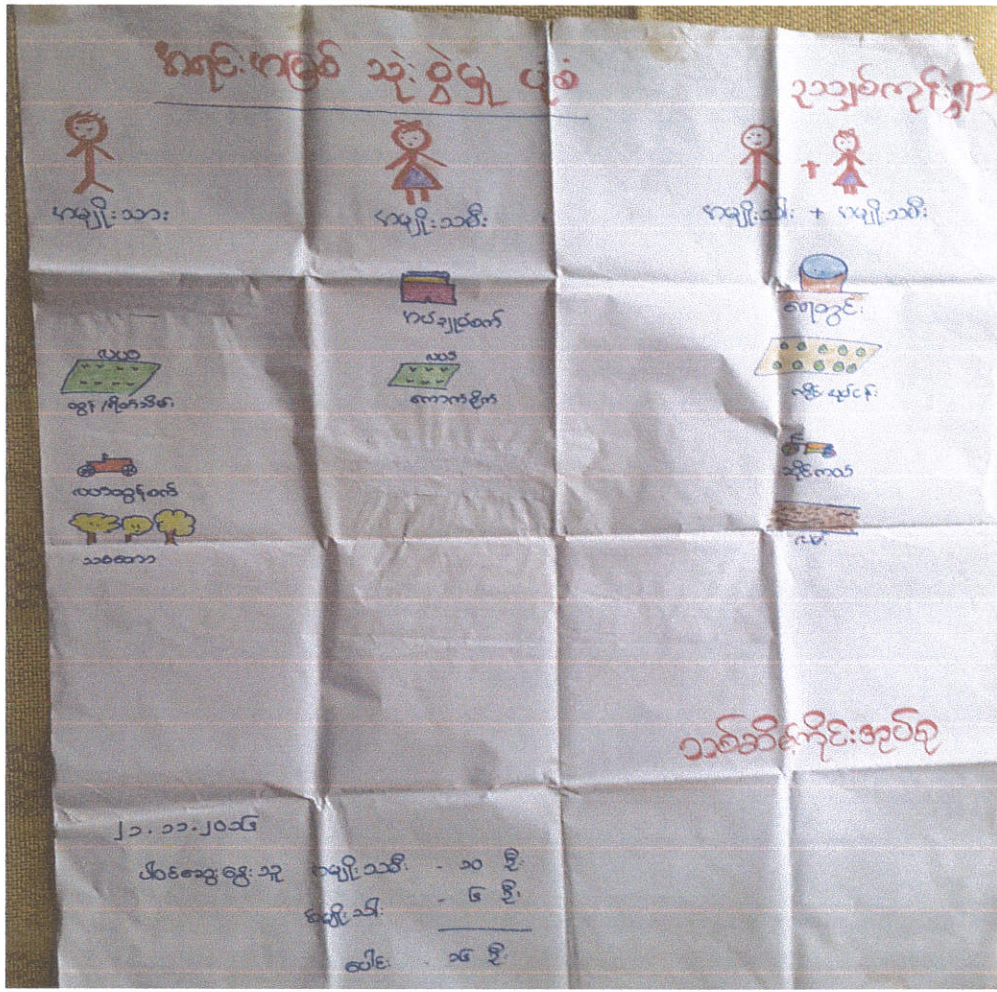 အရင်းအမြစ် သုံးစွဲမှု ပုံစံ
ဥသျှစ်ကုန်းရွာ
အမျိုးသား
အမျိုးသမီး
အမျိုးသား + အမျိုးသမီး
အပ်ချုပ်စက်
ရေတွင်း
လယ်
ထွန် /ရိတ်သိမ်း
လယ်
ကောက်စိုက်
လယ်ထွန်စက်
ဆိုင်ကယ်
သစ်တော
လမ်း
သစ်ဆိမ့်ကိုင်းအုပ်စု
၂၁.၁၁.၂၀၁၆
ပါဝင်ဆွေးနွေးသူ အမျိုးသမီး - ၁၀ ဦး
အမျိုးသား - ၆ ဦး
ပေါင်း - ၁၆ ဦး